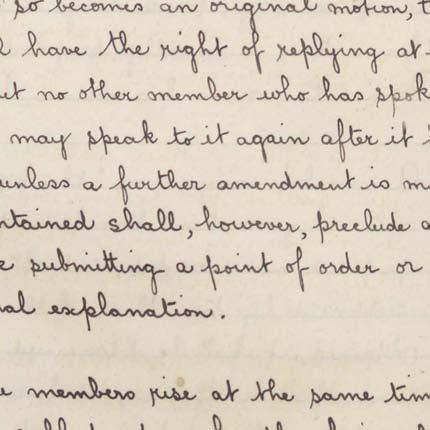 so becomes an original motion, t
l have the right of replying at
ut no other member who has spok
may speak to it again after it
unless a further amendment is m
ntained shall, however, preclude a
submitting a point of order or
nal explanation.
e members rise at the same tim